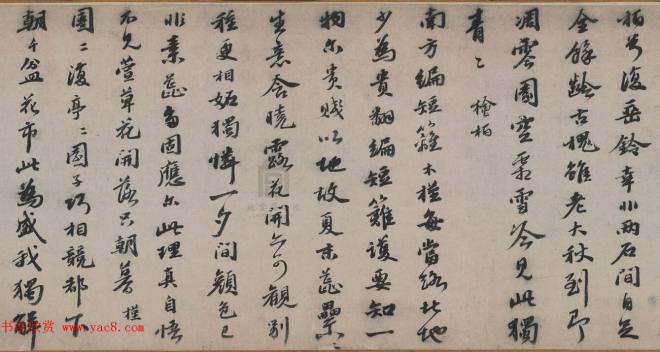 栢芳復垂鈴幸小兩石間自是
全餘齡古槐雖老大秋到即
凋零園空霜雪冷見此獨
青〻 檜栢
南方編短籬木槿每當路北地
少為貴翻編短籬護要知一
物尓貴賤以地故夏末蕋纍〻
生意含曉露花開亦可觀別
種更相妬獨憐一夕間顏色已
非素蕋多固應尓此理真自悟
不見萱草花開落只朝暮 槿
團〻復亭〻園子巧相競都下
朝千盆花市此為盛我獨解
书法欣赏
www.yac8.com